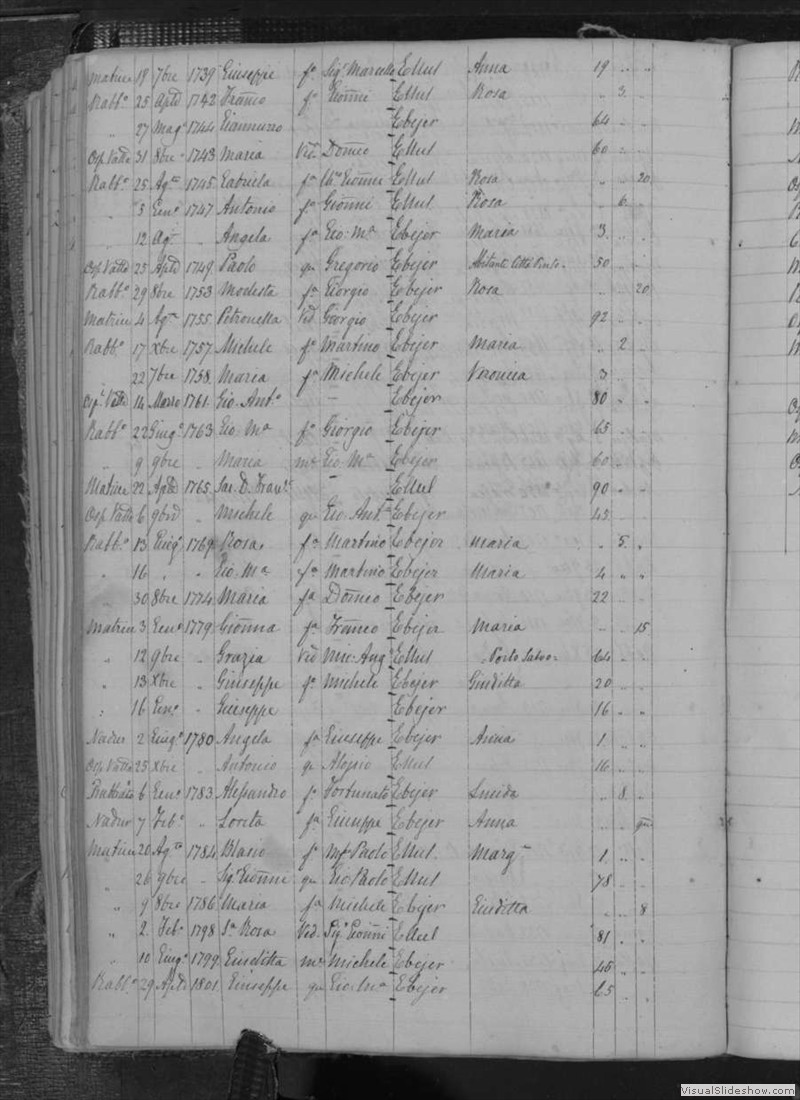 Matrice 19 7bre 1739 Giuseppe fo Sigr Marcello Ellul Anna 19 .. ..
Rabbo 25 Aple 1742 Franco fo Gionni Ellul Rosa .. 3 ..
.. 27 Mago 1744 Ebejer 64 .. ..
Osp Valltta 31 8bre 1743 Maria Vid. Domco Ellul 60 .. ..
Rabbo 25 Ago 1745 Gabriela fa Gionni Ellul Rosa .. .. 20
.. 3 Geno 1747 Antonio fo Gionni Ellul Rosa .. 6 ..
.. 12 Ago .. Angela fa Gio: Ma Ebejer Maria 3 .. ..
Osp Valltta 25 Aple 1749 Paolo qm Gregorio Ebejer Abitante Città 50 .. ..
Rabbo 29 8bre 1753 Modesta fa Giorgio Ebejer Rosa .. .. 20
Matrice 4 Ago 1755 Petronella Vid Giorgio Ebejer 92 .. ..
Rabbo 17 Xbre 1757 Michele fo Martino Ebejer Maria .. 2 ..
.. 22 7bre 1758 Maria fa Michele Ebejer Veronica 3 .. ..
Osp Valltta 14 Marzo 1761 Gio: Anto - Ebejer 80 .. ..
Rabbo 22 Giugo 1763 Gio: Ma fo Giorgio Ebejer 65 .. ..
.. 9 9bre .. Maria me Gio: Ma Ebejer 60 .. ..
Matrice 22 Aple 1765 Sac. D. Franco - Ellul 90 .. ..
Osp Valltta 6 9bre .. Michele qm Gio: Anto Ebejer 45 .. ..
Rabbo 13 Giugo 1769 Rosa fa Martino Ebejer Maria .. 5 ..
.. 16 .. .. Gio: Ma fo Martino Ebejer Maria 4 .. ..
.. 30 8bre 1774 Maria fa Domco Ebejer 22 .. ..
Matrice 3 Geno 1779 Gionna fa Franco Ebejer Maria .. .. 15
.. 12 9bre .. Grazia Vid Mic: Ang Ellul Porto Salvo 64 .. ..
.. 13 Xbre .. Giuseppe fo Michele Ebejer Giuditta 20 .. ..
.. 16 Geno .. Giuseppe Ebejer 16 .. ..
Nadur 2 Giugo 1780 Angela fa Giuseppe Ebejer Anna 1 .. ..
Osp Valltta 25 Xbre .. Antonio qm Aloysio Ellul 16 .. ..
Rabbato 6 Geno 1783 Alessandro fo Fortunato Ebejer .. 8 ..
Nadur 7 Febo .. Lorita fa Giuseppe Ebejer Anna .. ..
Matrice 20 Ago 1784 Blasio fo Paolo Ellul Marga 1 .. ..
.. 26 9bre .. Sigr Gionni qm Gio Paolo Ellul 78 .. ..
.. 9 8bre 1786 Maria fa Michele Ebejer Giuditta .. .. 8
.. 2 Febo 1798 Sa Rosa Ved. Sigr Gionni Ellul 81 .. ..
.. 10 Giugo 1799 Giuditta me Michele Ebejer 46 .. ..
Rabbo 29 Aple 1801 Giuseppe qm Gio: Ma Ebejer 65 .. ..
VisualSlideshow.com